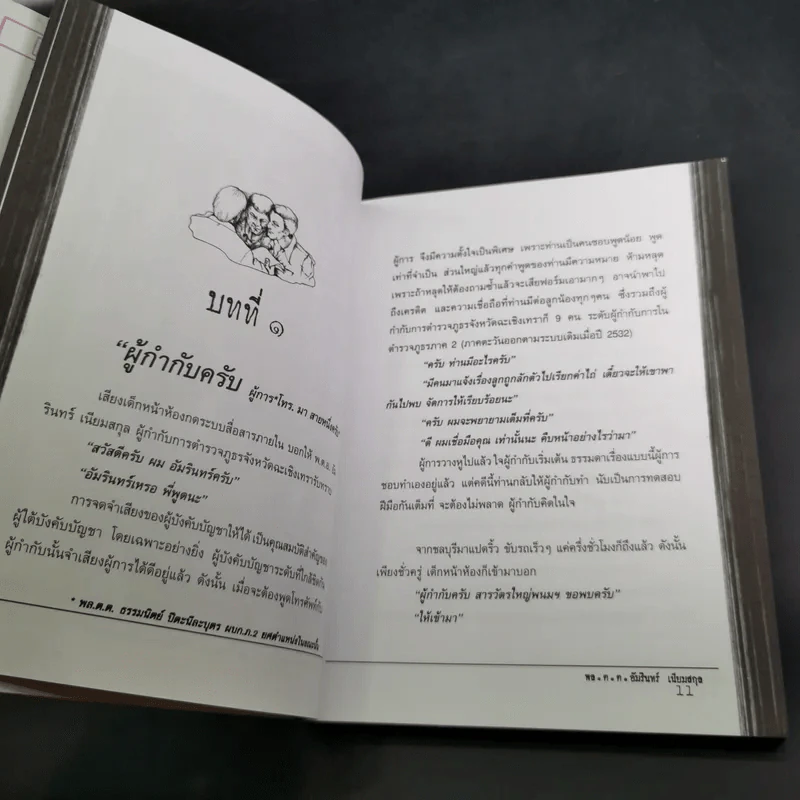 บทที่ ๑
"ผู้กำกับครับ ผู้การ*โทร. มา สายหนึ่งครับ"
เสียงเด็กหน้าห้องกดระบบสื่อสารภายใน บอกให้ พ.ต.อ.
รินทร์ เนียมสกุล ผู้กำกับการตำรวจภูธรจังหวัดฉะเชิงเทรารับทราบ
"สวัสดีครับ ผม อัมรินทร์ครับ"
"อัมรินทร์เหรอ พี่พูดนะ"
การจดจำเสียงของผู้บังคับบัญชาให้ได้ เป็นคุณสมบัติสำคัญของ
ผู้ใต้บังคับบัญชา โดยเฉพาะอย่างยิ่ง ผู้บังคับบัญชาระดับที่ใกล้ชิดกัน
ผู้กำกับนั้นจำเสียงผู้การได้ดีอยู่แล้ว ดังนั้น เมื่อจะต้องพูดโทรศัพท์กับ
* พล.ต.ต. ธรรมนิตย์ ปิตะนีละบุตร ผบก.ภ.2 ยศตำแหน่งในขณะนั้น
ผู้การ จึงมีความตั้งใจเป็นพิเศษ เพราะท่านเป็นคนชอบพูดน้อย พูด
เท่าที่จำเป็น ส่วนใหญ่แล้วทุกคำพูดของท่านมีความหมาย ห้ามหลุด
เพราะถ้าหลุดให้ต้องถามซ้ำแล้วจะเสียฟอร์มเอามากๆ อาจนำพาไป
ถึงเครดิต และความเชื่อถือที่ท่านมีต่อลูกน้องทุกๆคน ซึ่งรวมถึงผู้
กำกับการตำรวจภูธรจังหวัดฉะเชิงเทราก็ 9 คน ระดับผู้กำกับการใน
ตำรวจภูธรภาค 2 (ภาคตะวันออกตามระบบเดิมเมื่อปี 2532)
"ครับ ท่านมีอะไรครับ"
"มีคนมาแจ้งเรื่องลูกถูกลักตัวไปเรียกค่าไถ่ เดี๋ยวจะให้เขาพา
กันไปพบ จัดการให้เรียบร้อยนะ"
"ครับ ผมจะพยายามเต็มที่ครับ"
"ดี ผมเชื่อมือคุณ เท่านั้นนะ คืบหน้าอย่างไรว่ามา"
ผู้การวางหูไปแล้ว ใจผู้กำกับเริ่มเต้น ธรรมดาเรื่องแบบนี้ผู้การ
ชอบทำเองอยู่แล้ว แต่คดีนี้ท่านกลับให้ผู้กำกับทำ นับเป็นการทดสอบ
ฝีมือกันเต็มที่ จะต้องไม่พลาด ผู้กำกับคิดในใจ
จากชลบุรีมาแปดริ้ว ขับรถเร็วๆ แค่ครึ่งชั่วโมงก็ถึงแล้ว ดังนั้น
เพียงชั่วครู่ เด็กหน้าห้องก็เข้ามาบอก
"ผู้กำกับครับ สารวัตรใหญ่พนมฯ ขอพบครับ"
"ให้เข้ามา"
พล.ต.ต.อัมรินทร์ เนียมสกุล
11